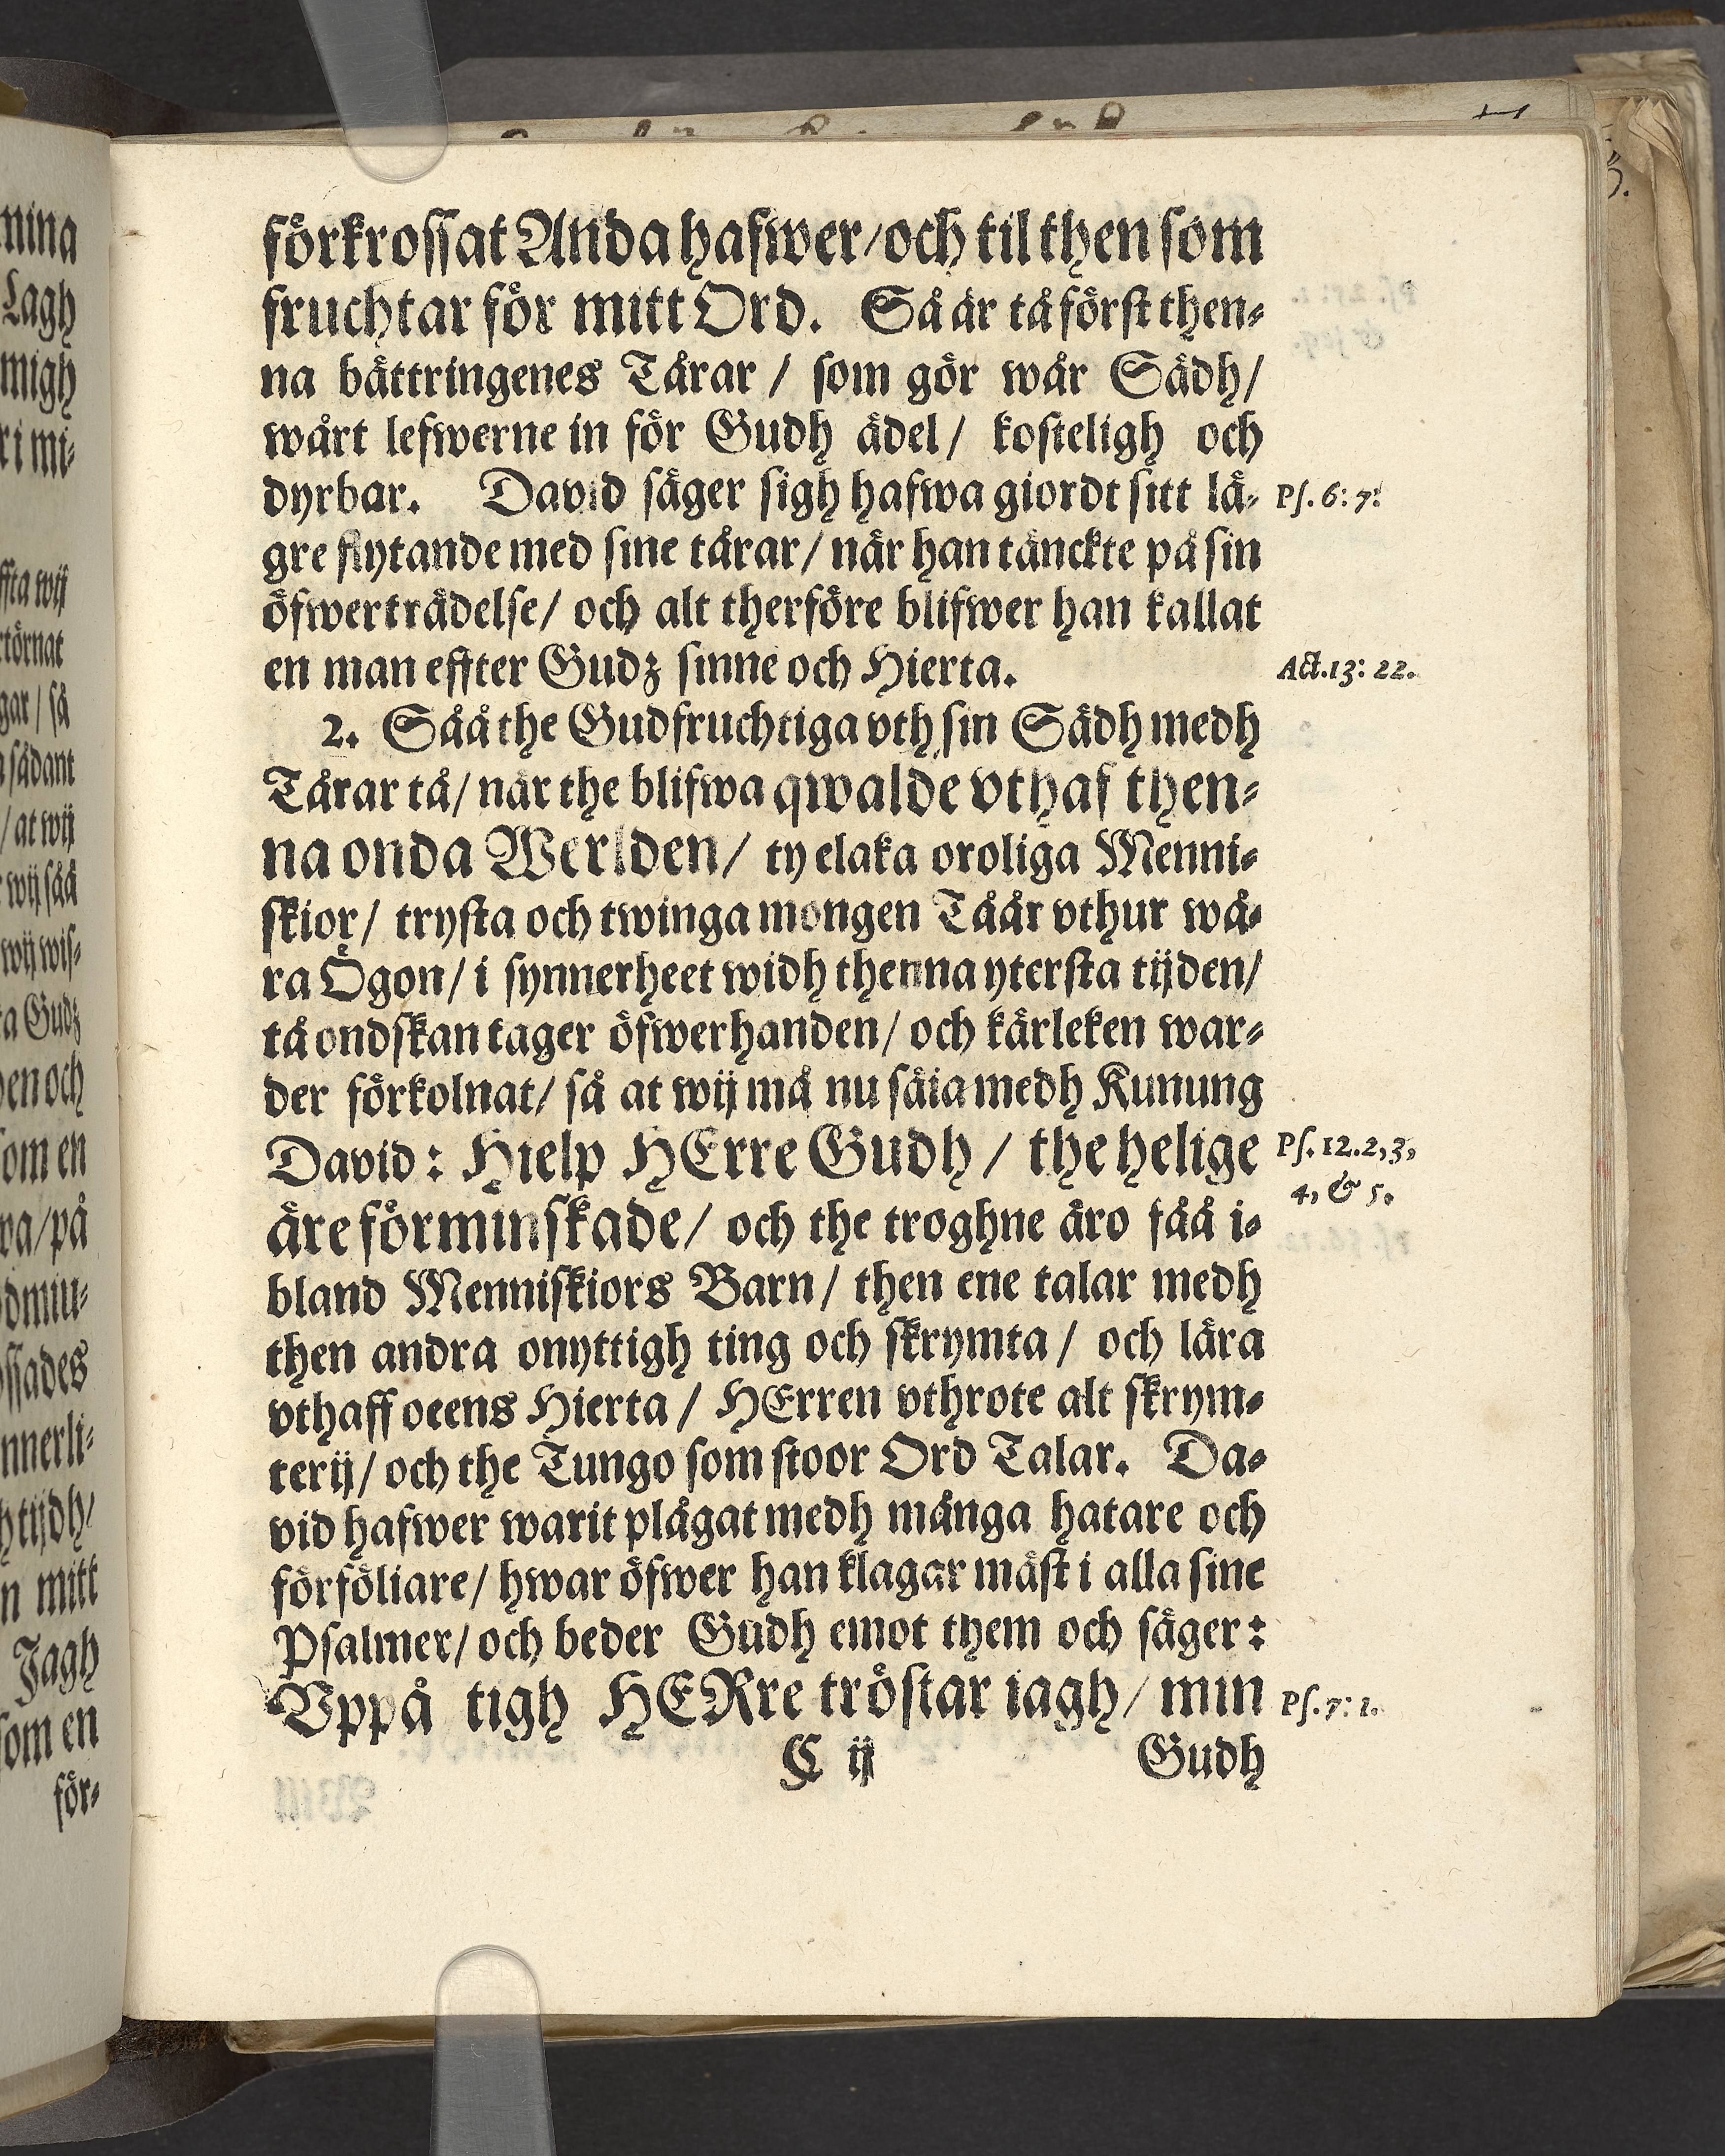 förkrossat Anda hafwer/och til then som
fruchtar för mitt Ord. Så är tå först then-
na bättringenes Tårar / som gör wår Sädh/
wårt lefwerne in för Gudh ädel/ kosteligh och
dyrbar. David säger sigh hafwa giordt sitt lä-
Ps. 6: 7.
gre flytande med sine tårar/ när han tänckte på sin
öfwerträdelse/ och alt therföre blifwer han kallat
en man effter Gudz sinne och Hierta.
Act. 13: 22.
2. Såå the Gudfruchtiga vth sin Sädh medh
Tårar tå/ när the blifwa qwalde vthaf then-
na onda Werlden/ ty elaka oroliga Menni-
skior/ trysta och twinga mongen Tåår vthur wå-
ra Ögon/ i synnerheet widh thenna ytersta tijden/
tå ondskan tager öfwerhanden/ och kärleken war-
der förkolnat/ så at wij må nu säia medh Kunung
David: Hielp HErre Gudh / the helige
Ps. 12. 2, 3,
4, & 5.
äre förminskade/ och the troghne äro fåå i-
bland Menniskiors Barn/ then ene talar medh
then andra onyttigh ting och skrymta/ och lära
vthaff oeens Hierta / HErren vthrote alt skrym-
terij/ och the Tungo som stoor Ord Talar. Da-
vid hafwer warit plågat medh många hatare och
förföliare/ hwar öfwer han klagar mäst i alla sine
Psalmer/ och beder Gudh emot them och säger:
Vppå tigh HERre tröstar iagh/ min
Ps. 7: 1.
C ij Gudh